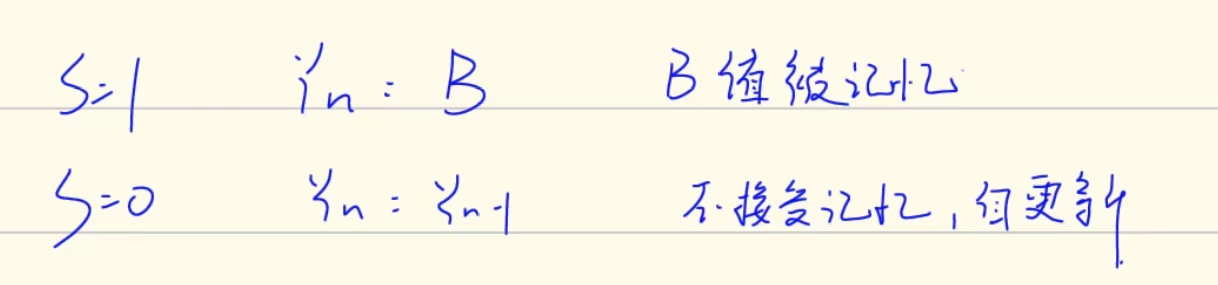 S=1 Yn = B B值被记忆
S=0 Yn = Yn-1 不接受记忆,更新